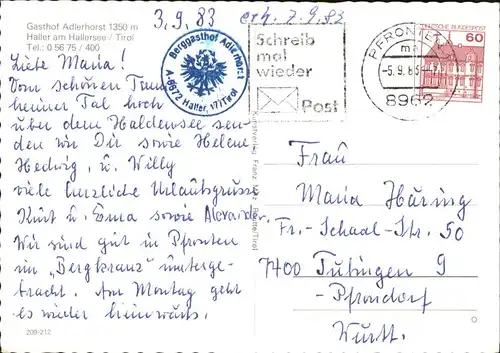 Gasthof Adlerhorst 1350 m
Haller am Hallersee / Tirol
Tel.: 0 56 75 / 400
3.9.83
erh. 7.9.83
Berggasthof Adlerhorst
A-6672 Haller, 17/Tirol
Schreib
mal
wieder
Post
PFRONTEN
-5.9.83
8962
DEUTSCHE BUNDESPOST
60
Liebe Maria!
Vom schönen Tann
heimer Tal hoch
über dem Haldensee sen-
den wir Dir sowie Helene
Hedwig, u. Willy
viele herzliche Urlaubsgrüsse
Kurt u. Erna sowie Alexander.
Wir sind gut in Pfronten
im „Bergkranz" unterge-
bracht. Am Montag geht
es wieder heimwärts.
Frau
Maria Häring
Fr.-Schaal-Str. 50
7400 Tübingen 9
-Pfrondorf
Württ.
209-212